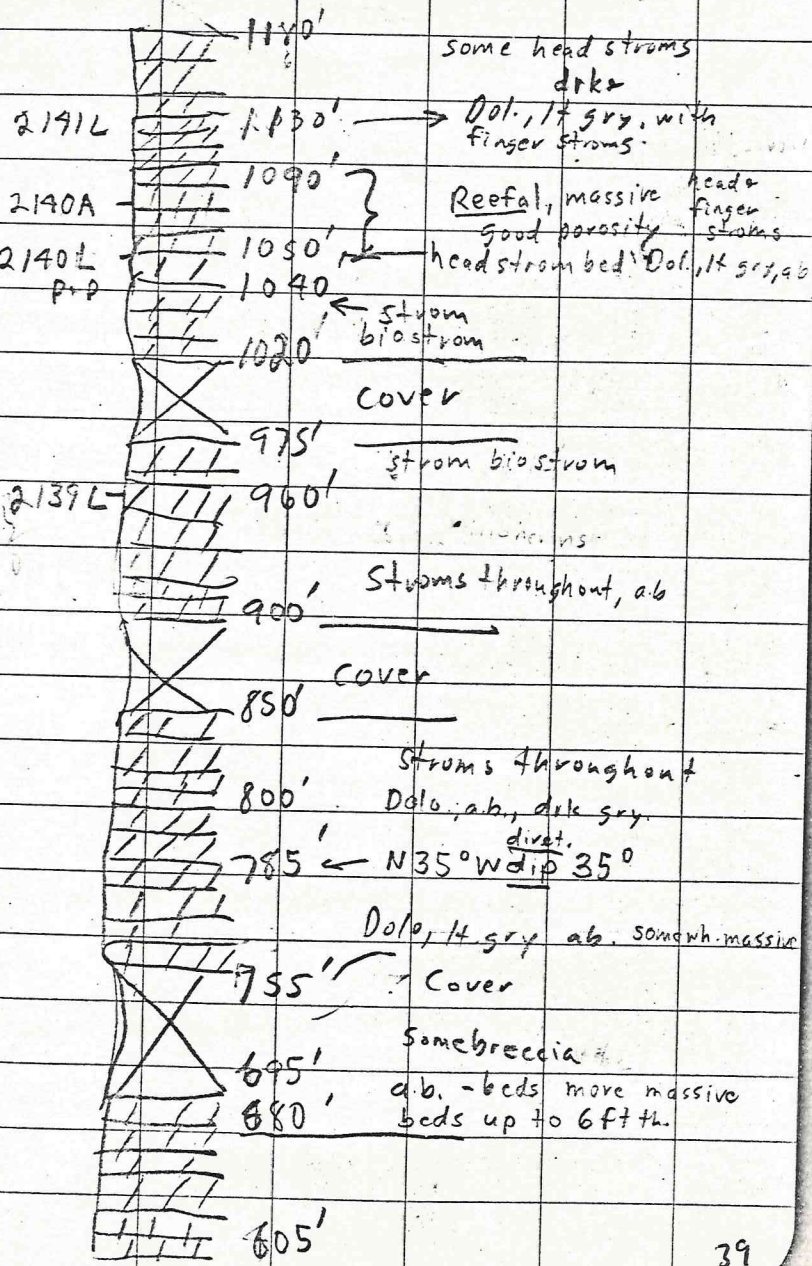 1180'
some head stroms
drk &
2141L 1130' → Dol., lt gry, with
finger stroms.
1090'
2140A Reefal, massive head & finger stroms
good porosity
2140L 1050' head strom bed Dol., lt gry, ab
P+P 1040'
← strom
biostrom
1020'
Cover
975'
strom biostrom
2139L 960'
Stroms throughout, a.b
900'
Cover
850'
Stroms throughout
800' Dolo., a.b., drk gry.
direct.
785' ← N35°W dip 35°
Dolo, lt gry ab. somewh. massive
755' Cover
Some breccia
695'
a.b. - beds more massive
680' beds up to 6ft th.
605'
39